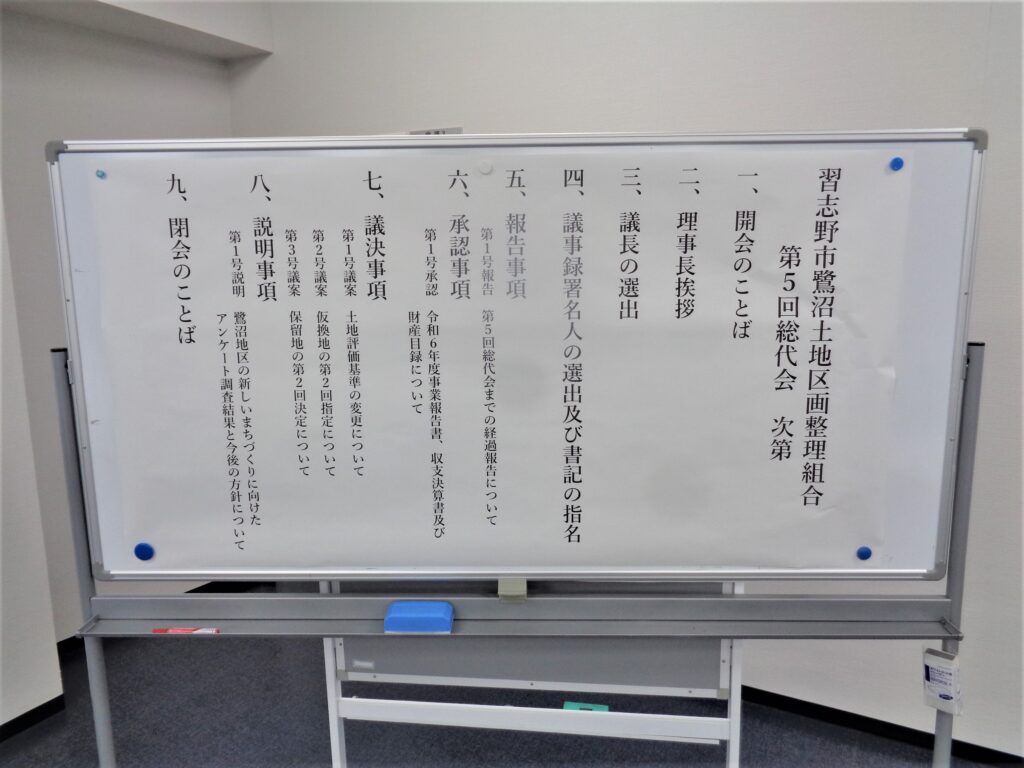 習志野市鷺沼土地区画整理組合
第5回総代会 次第
一、開会のことば
二、理事長挨拶
三、議長の選出
四、議事録署名人の選出及び書記の指名
五、報告事項
第1号報告 第5回総代会までの経過報告について
六、承認事項
第1号承認 令和6年度事業報告書、収支決算書及び
財産目録について
七、議決事項
第1号議案 土地評価基準の変更について
第2号議案 仮換地の第2回指定について
第3号議案 保留地の第2回決定について
八、説明事項
第1号説明 鷺沼地区の新しいまちづくりに向けた
アンケート調査結果と今後の方針について
九、閉会のことば